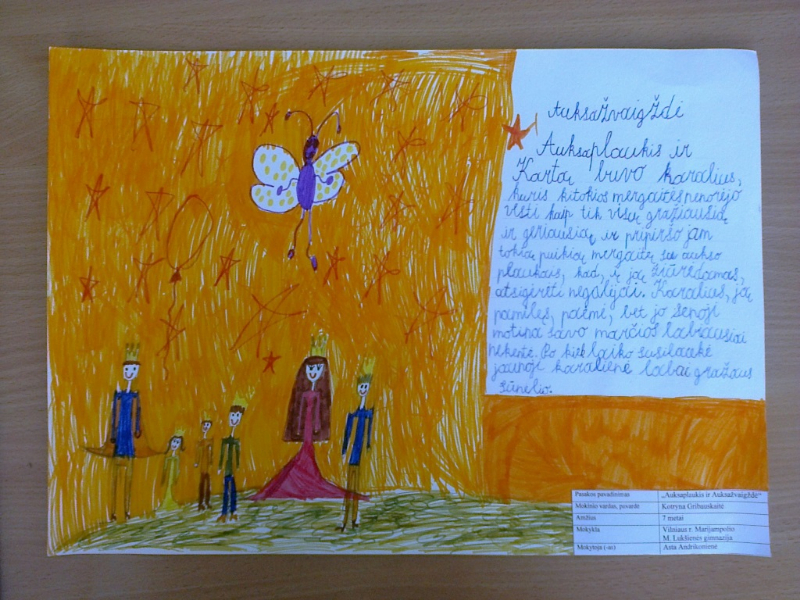 Auksažvaigždė
Auksaplaukis ir
Kartą buvo karalius,
kuris kitokios mergaitės nenorėjo
vesti kaip tik visų gražiausią
ir geriausią, ir pripiršo jam
tokią puikią mergaitę su aukso
plaukais, kad, į ją žiūrėdamas,
atsigėrėti negalėjai. Karalius, ją
pamilęs, paėmė, bet jo senoji
motina savo marčios labiausiai
nekentė. Po kiek laiko susilaukė
jaunoji karalienė labai gražaus
sūnelio.
Pasakos pavadinimas „Auksaplaukis ir Auksažvaigždė“
Mokinio vardas, pavardė Kotryna Gribauskaitė
Amžius 7 metai
Mokykla Vilniaus r. Marijampolio
M. Lukšienės gimnazija
Mokytoja (-as) Asta Andrikonienė